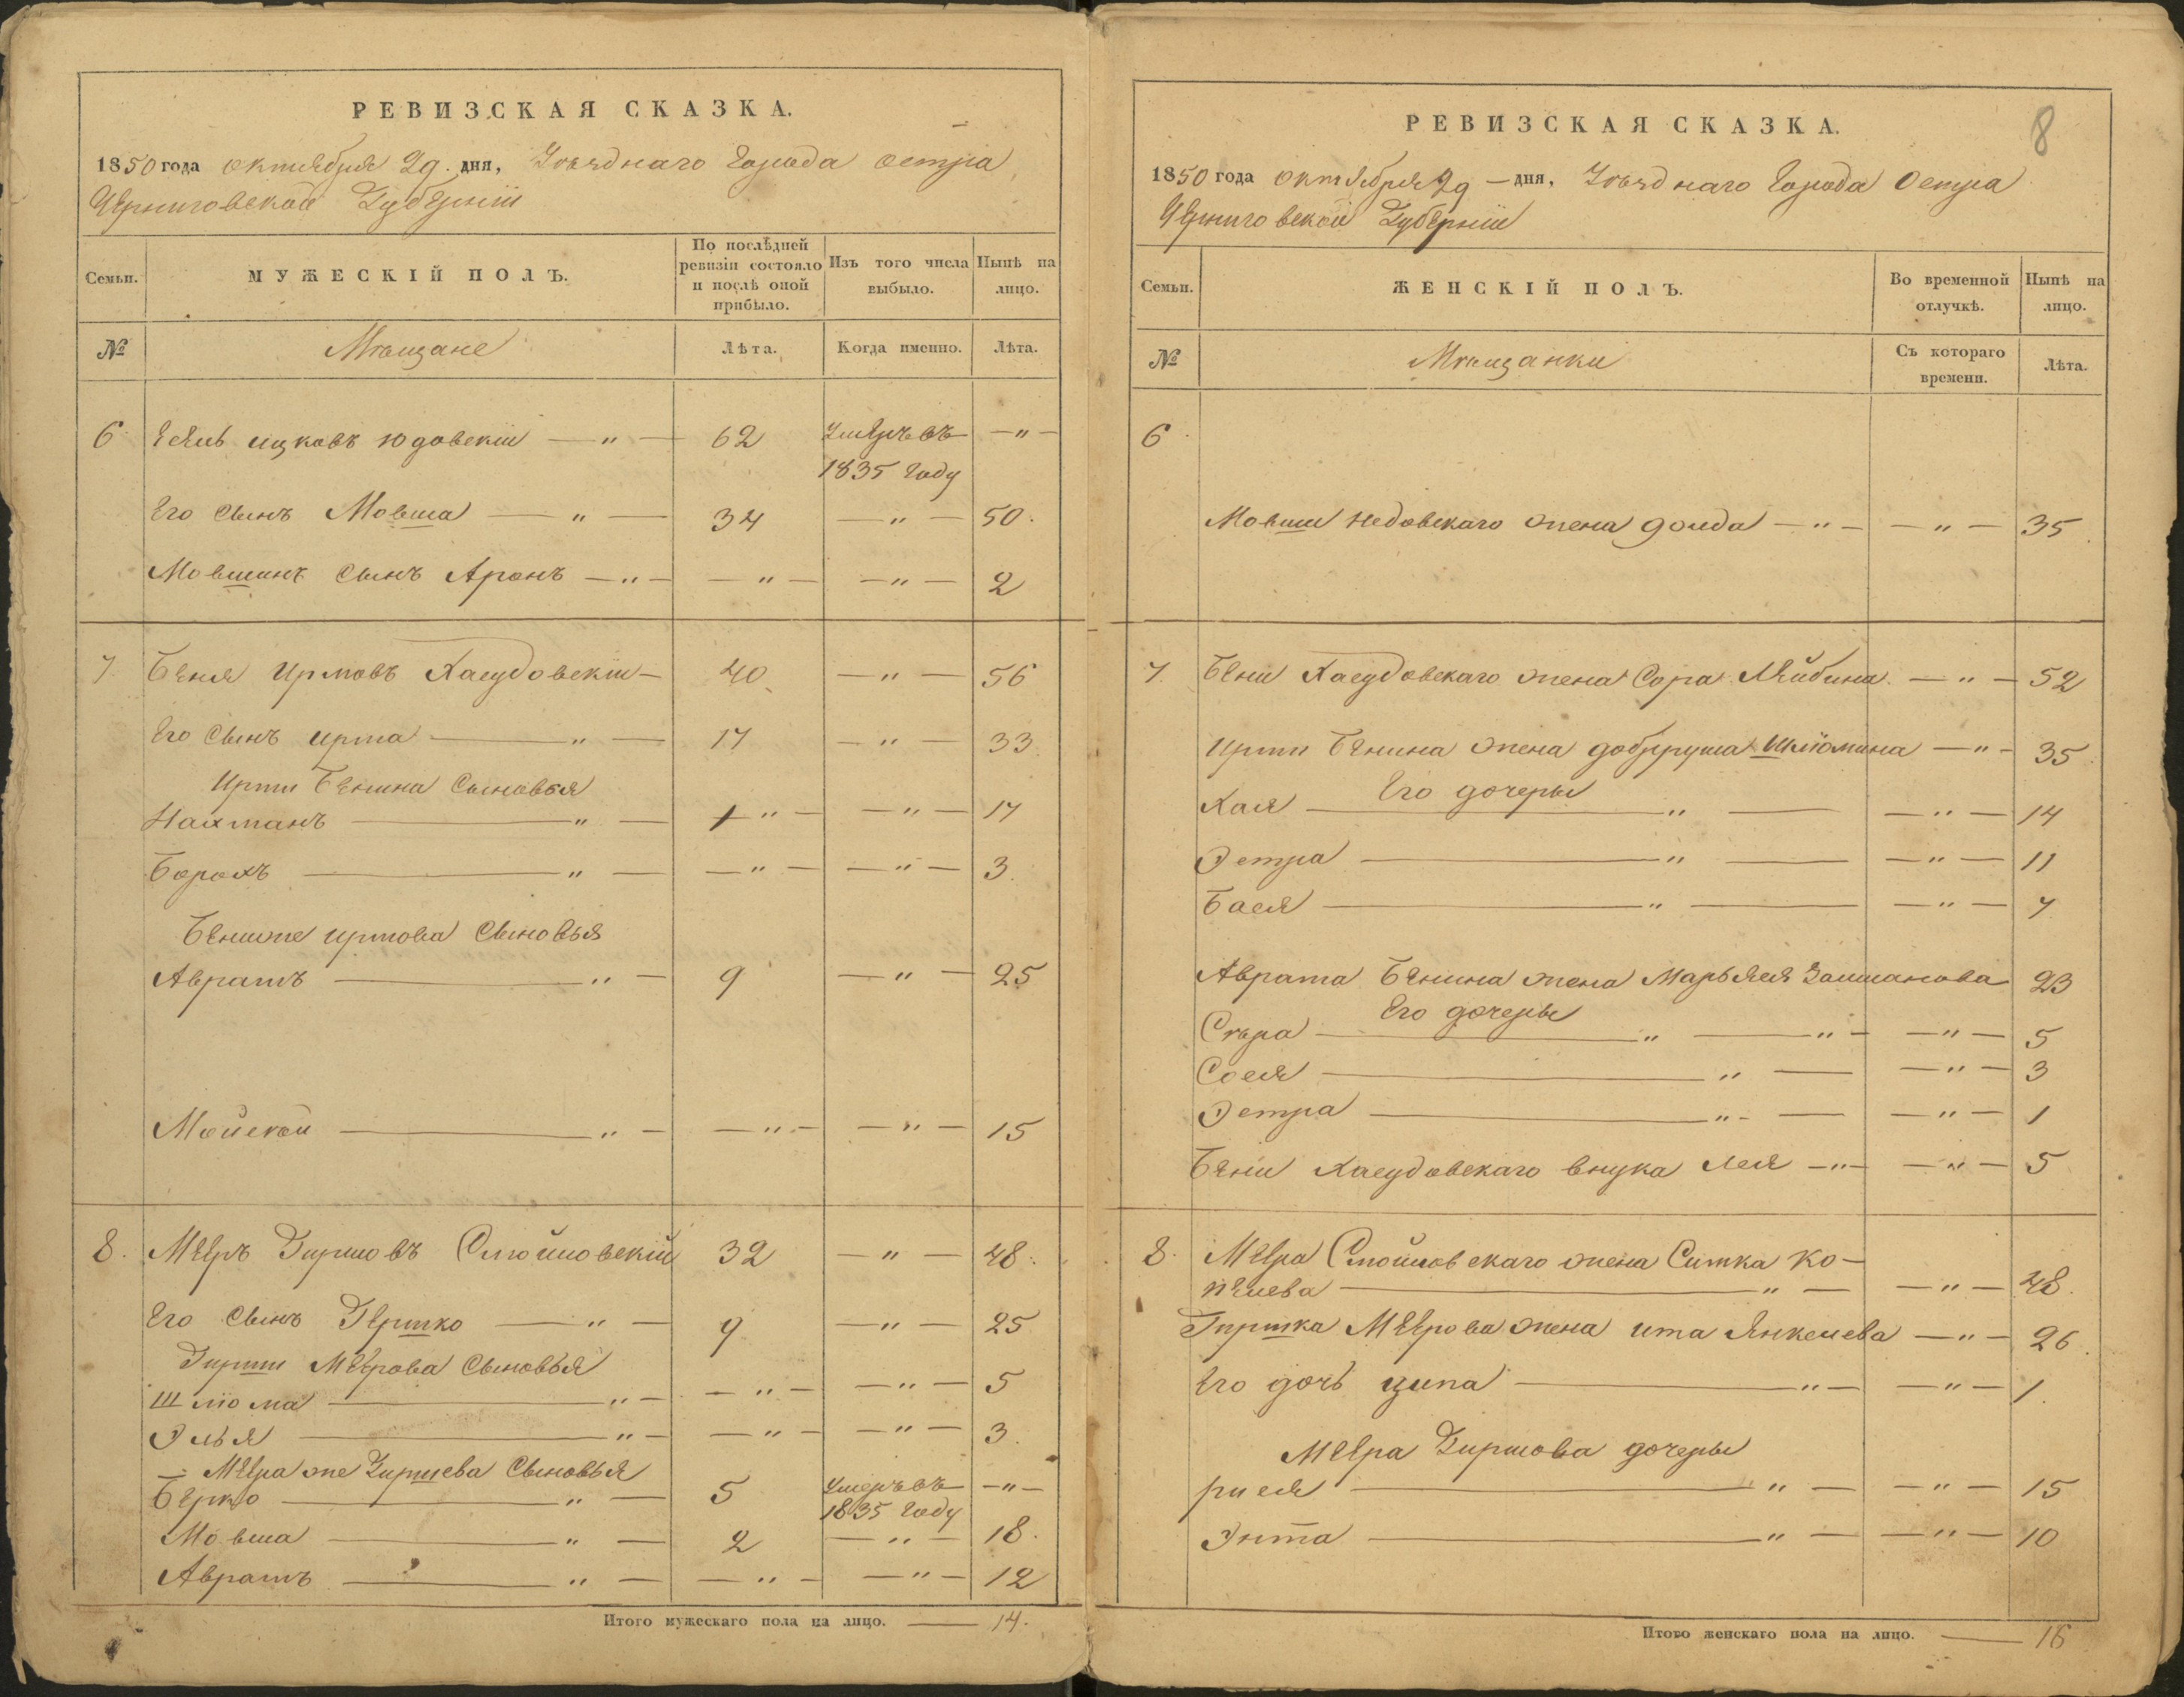 РЕВИЗСКАЯ СКАЗКА.
1850 года октября 29. дня, Уѣзднаго города остра
Черниговской Губерніи
Семьи.
МУЖЕСКІЙ ПОЛЪ.
По послѣдней ревизіи состояло и послѣ оной прибыло.
Изъ того числа выбыло.
Нынѣ на лицо.
№
Мѣщане
Лѣта.
Когда именно.
Лѣта.
6 ицковъ юдовскій — " — 62 Умеръ въ — " —
1835 году
Его сынъ Мовша — " — 34 — " — 50.
Мовшинъ сынъ Аронъ — " — — " — — " — 2
7. Беня Ирмовъ Хасудовскій — 40 — " — 56
Его сынъ ирма — " — 17 — " 33
Ирми Бенина сыновья
Нахманъ — " — 1 " — — " — 17
Борохъ — " — — " — — " — 3.
Бениже ирмова сыновья
Аврамъ — " — 9 — " — 25
Мойсей — " — — " — — " — 15
8. Мееръ Гиршовъ 32 — " — 48.
Его сынъ Гершко — " — 9 — " — 25
Гирши Меерова сыновья
Шліома — " — — " — — " — 5
Элья — " — — " — — " — 3.
— Меера же Гиршева сыновья
Берко — " — 5 Умеръ въ — " —
1835 году
Мовша — " — 2 — " — 18.
Аврамъ — " — — " — — " — 12
Итого мужескаго пола на лицо. — 14.
8
РЕВИЗСКАЯ СКАЗКА.
1850 года октября 29 — дня, Уѣзднаго города Остра
Черниговской Губерніи
Семьи.
ЖЕНСКІЙ ПОЛЪ.
Во временной отлучкѣ.
Нынѣ на лицо.
№
Мѣщанки
Съ котораго времени.
Лѣта.
6
Мовши жена — " — — " — 35
7. Бени Хасудовскаго жена Сора Лейбина — " — 52
Ирми Бенина жена добруша Шліомина — " — 35
Его дочеры
Хая — " — — " — 14
Эстра — " — — " — 11
Бася — " — — " — 7
Аврама Бенина жена Марьяся 23
Его дочеры
Сѣра — " — " — — " — 5
Сося — " — — " — 3
Эстра — " — — " — 1
Бени Хасудовскаго внука лея — " — — " — 5
8. Меера жена Ситка Ко-
пелева — " — — " — 48.
Гиршка Меерова жена ита Янкелева — " — 26
Его дочь ципа — " — — " — 1
Меера Гиршова дочеры
рися — " — — " — 15
Энта — " — — " — 10
Итого женскаго пола на лицо. — 16